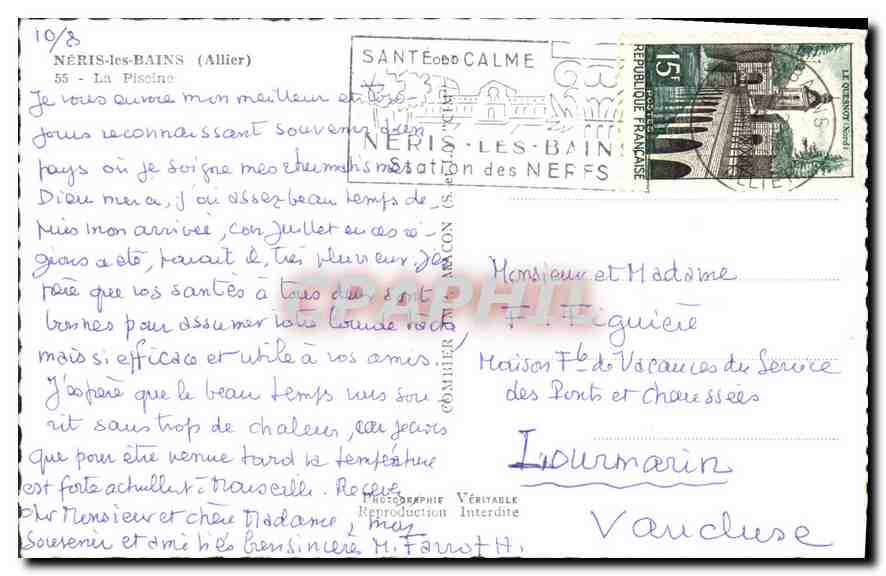 10/8
NÉRIS-les-BAINS (Allier)
55 - La Piscine
Je vous envoie mon meilleur et tou-
jours reconnaissant souvenir d'un
pays où je soigne mes rhumatismes.
Dieu merci, j'ai assez beau temps de-
puis mon arrivée, car Juillet en ces ré-
gions a été, paraît il, très pluvieux. J'es
père que vos santés à tous deux sont
bonnes pour assumer votre lourde tâche
mais si efficace et utile à vos amis.
J'espère que le beau temps vous sou
rit sans trop de chaleur, car je crois
que pour être venue tard la température
est forte actuellet à Marseille. Recevez
cher Monsieur et chère Madame, mes
souvenirs et amitiés bien sincères M. Farrot H.
SANTÉ CALME
NÉRIS-LES-BAINS
Station des NERFS
15F
POSTES
REPUBLIQUE FRANÇAISE
LE QUESNOY (Nord)
ALLIER
COMBIER IMP. MACON (S.-et-L.) "CIM"
CPAPHIL
Monsieur et Madame
F. Figuière
Maison Fle de Vacances du Service
des Ponts et chaussées
Lourmarin
Vaucluse
PHOTOGRAPHIE VÉRITABLE
Reproduction Interdite